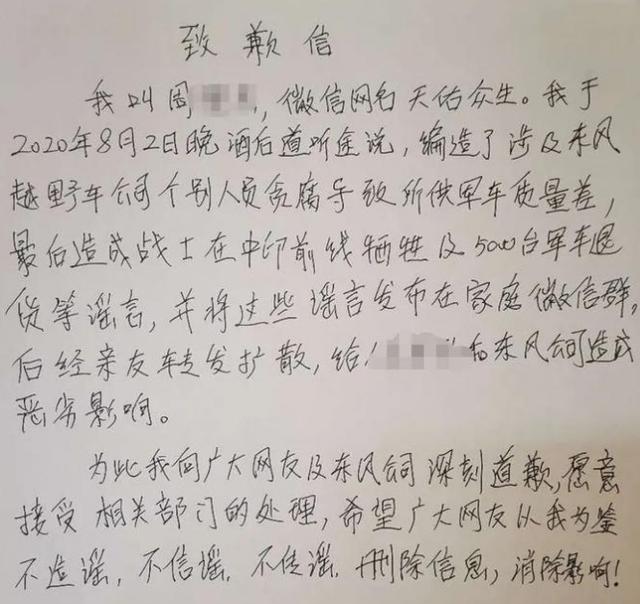 致歉信
我叫周，微信网名天佑众生。我于
2020年8月2日晚酒后道听途说，编造了涉及东风
越野车公司个别人员贪腐导致所供军车质量差，
最后造成战士在中印前线牺牲及5000台军车退
货等谣言，并将这些谣言发布在家庭微信群，
后经亲友转发扩散，给和东风公司造成
恶劣影响。
为此我向广大网友及东风公司深刻道歉，愿意
接受相关部门的处理，希望广大网友从我为鉴
不造谣，不信谣，不传谣，删除信息，消除影响！